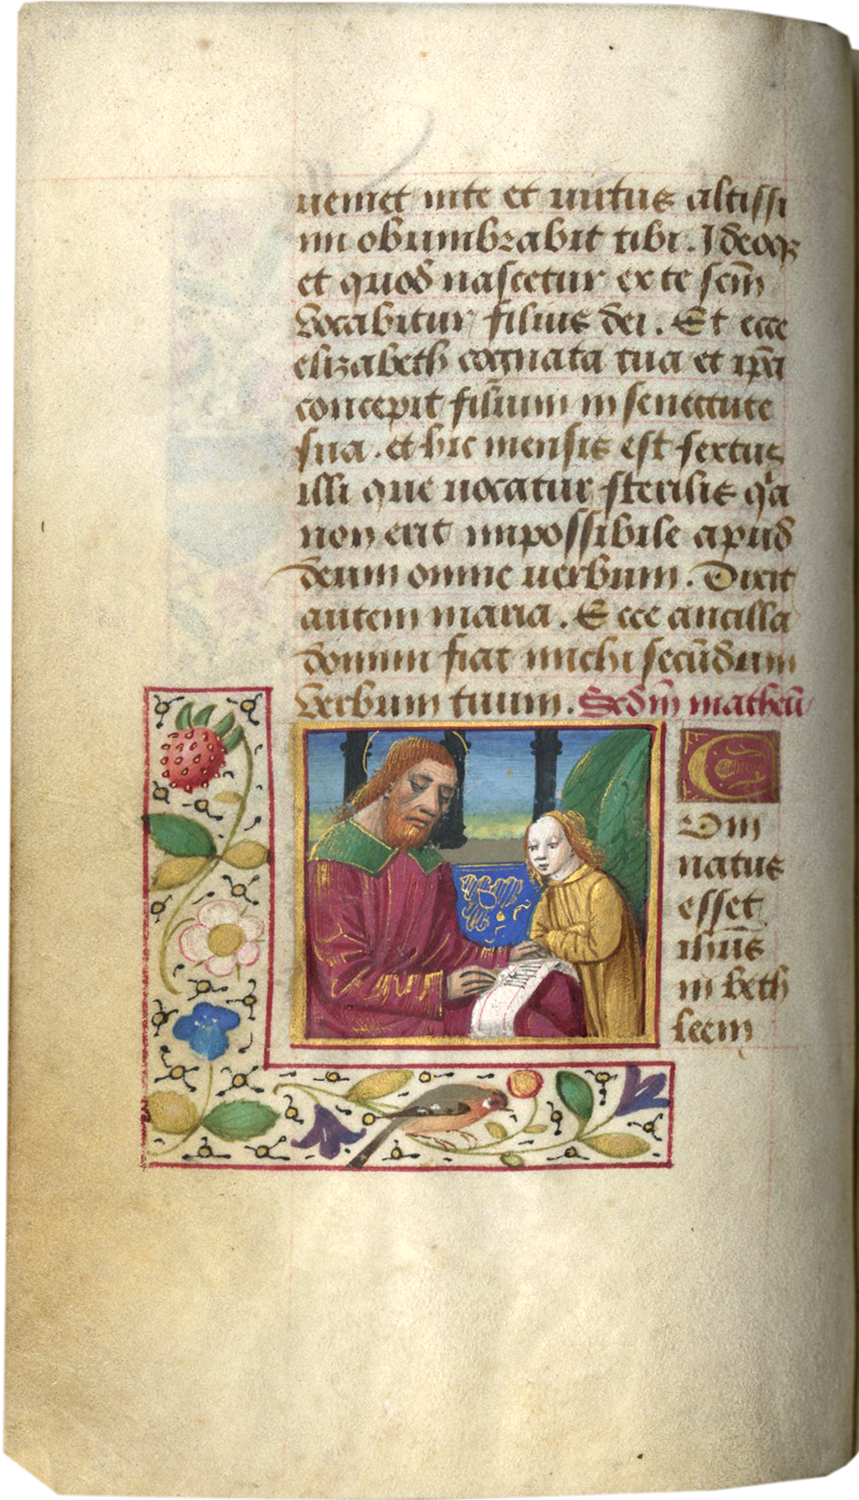 ueniet inte et uirtus altissi
mi obumbrabit tibi. Ideoqꝫ
et quod nascetur ex te scm̄
Vocabitur filius dei. Et ecce
elizabeth cognata tua et ip̄a
concepit filium in senectute
sua. et hic mensis est sextus
illi que uocatur sterilis qͥa
non erit impossibile apud
deum omne uerbum. Dixit
autem maria. Ecce ancilla
domini fiat michi secūdum
Verbum tuum. Scd̄m matheū
C
Vm
natus
esset
ih̄us
in beth
leem